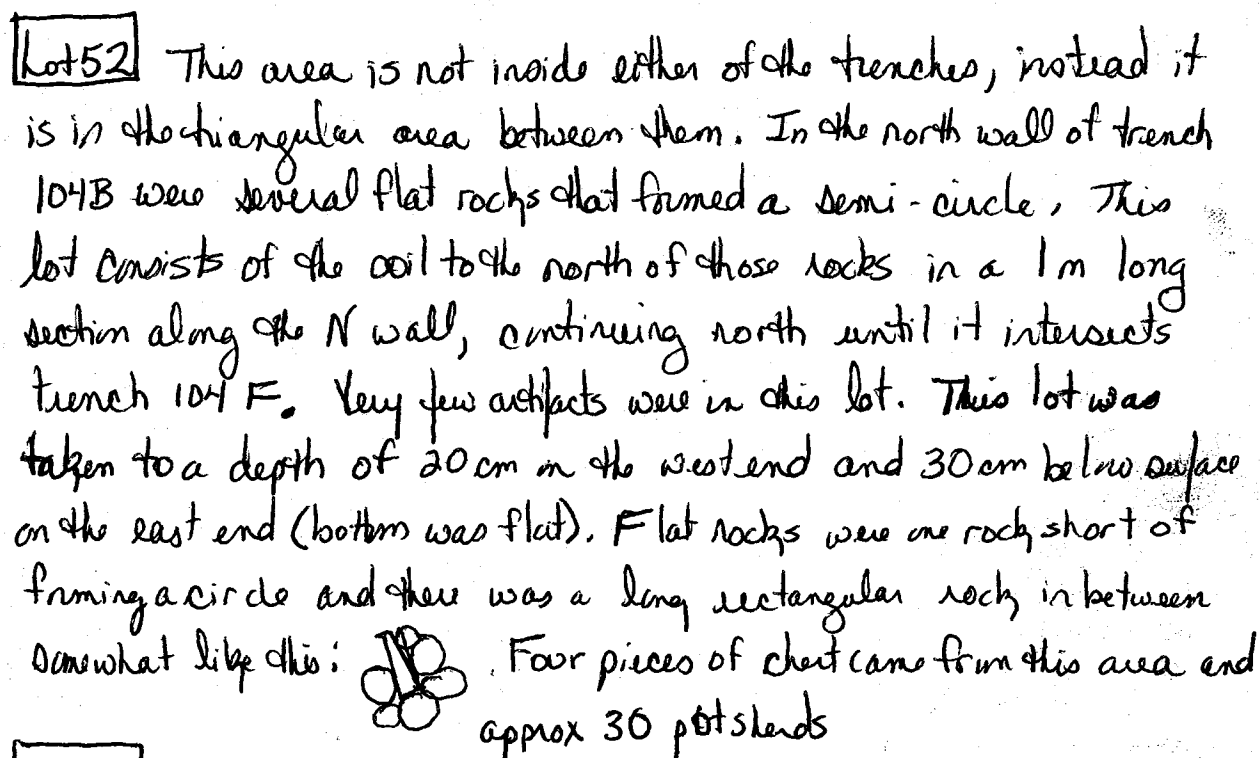 Lot 52 This area is not inside either of the trenches, instead it
is in the triangular area between them. In the north wall of trench
104B were several flat rocks that formed a semi-circle. This
lot consists of the soil to the north of those rocks in a 1m long
section along the N wall, continuing north until it intersects
trench 104F. Very few artifacts were in this lot. This lot was
taken to a depth of 20 cm on the west end and 30 cm below surface
on the east end (bottom was flat). Flat rocks were one rock short of
forming a circle and there was a long rectangular rock in between
somewhat like this: . Four pieces of chert came from this area and
approx 30 potsherds